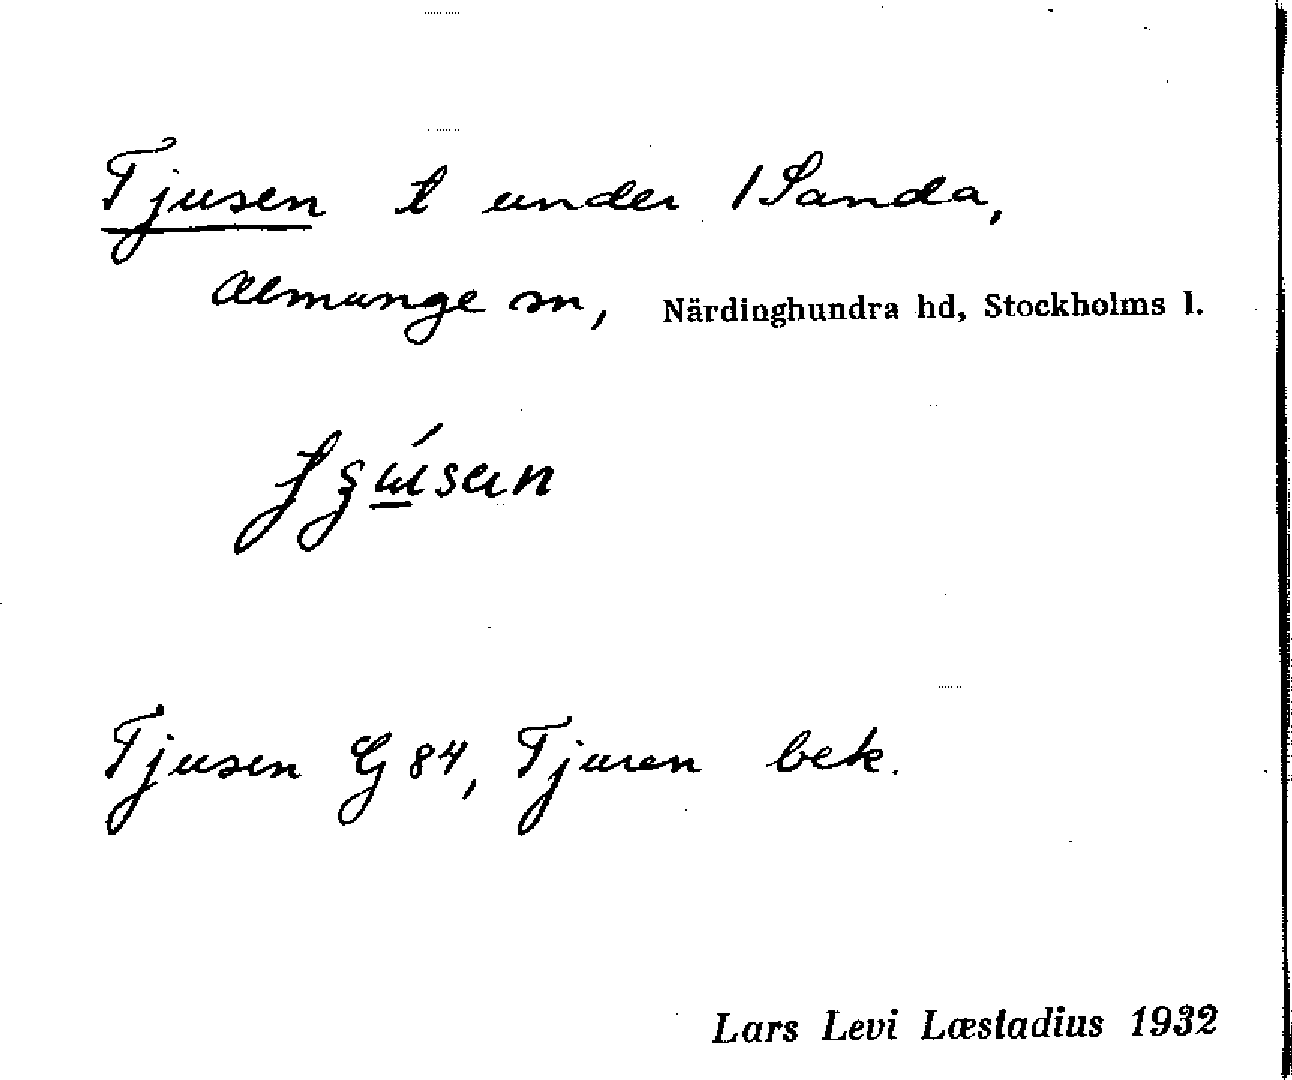 Tjusen t under 1 Sanda,
Almunge sn, Närdinghundra hd, Stockholms l.
Tjusen G 84, Tjuren bek.
Lars Levi Læstadius 1932